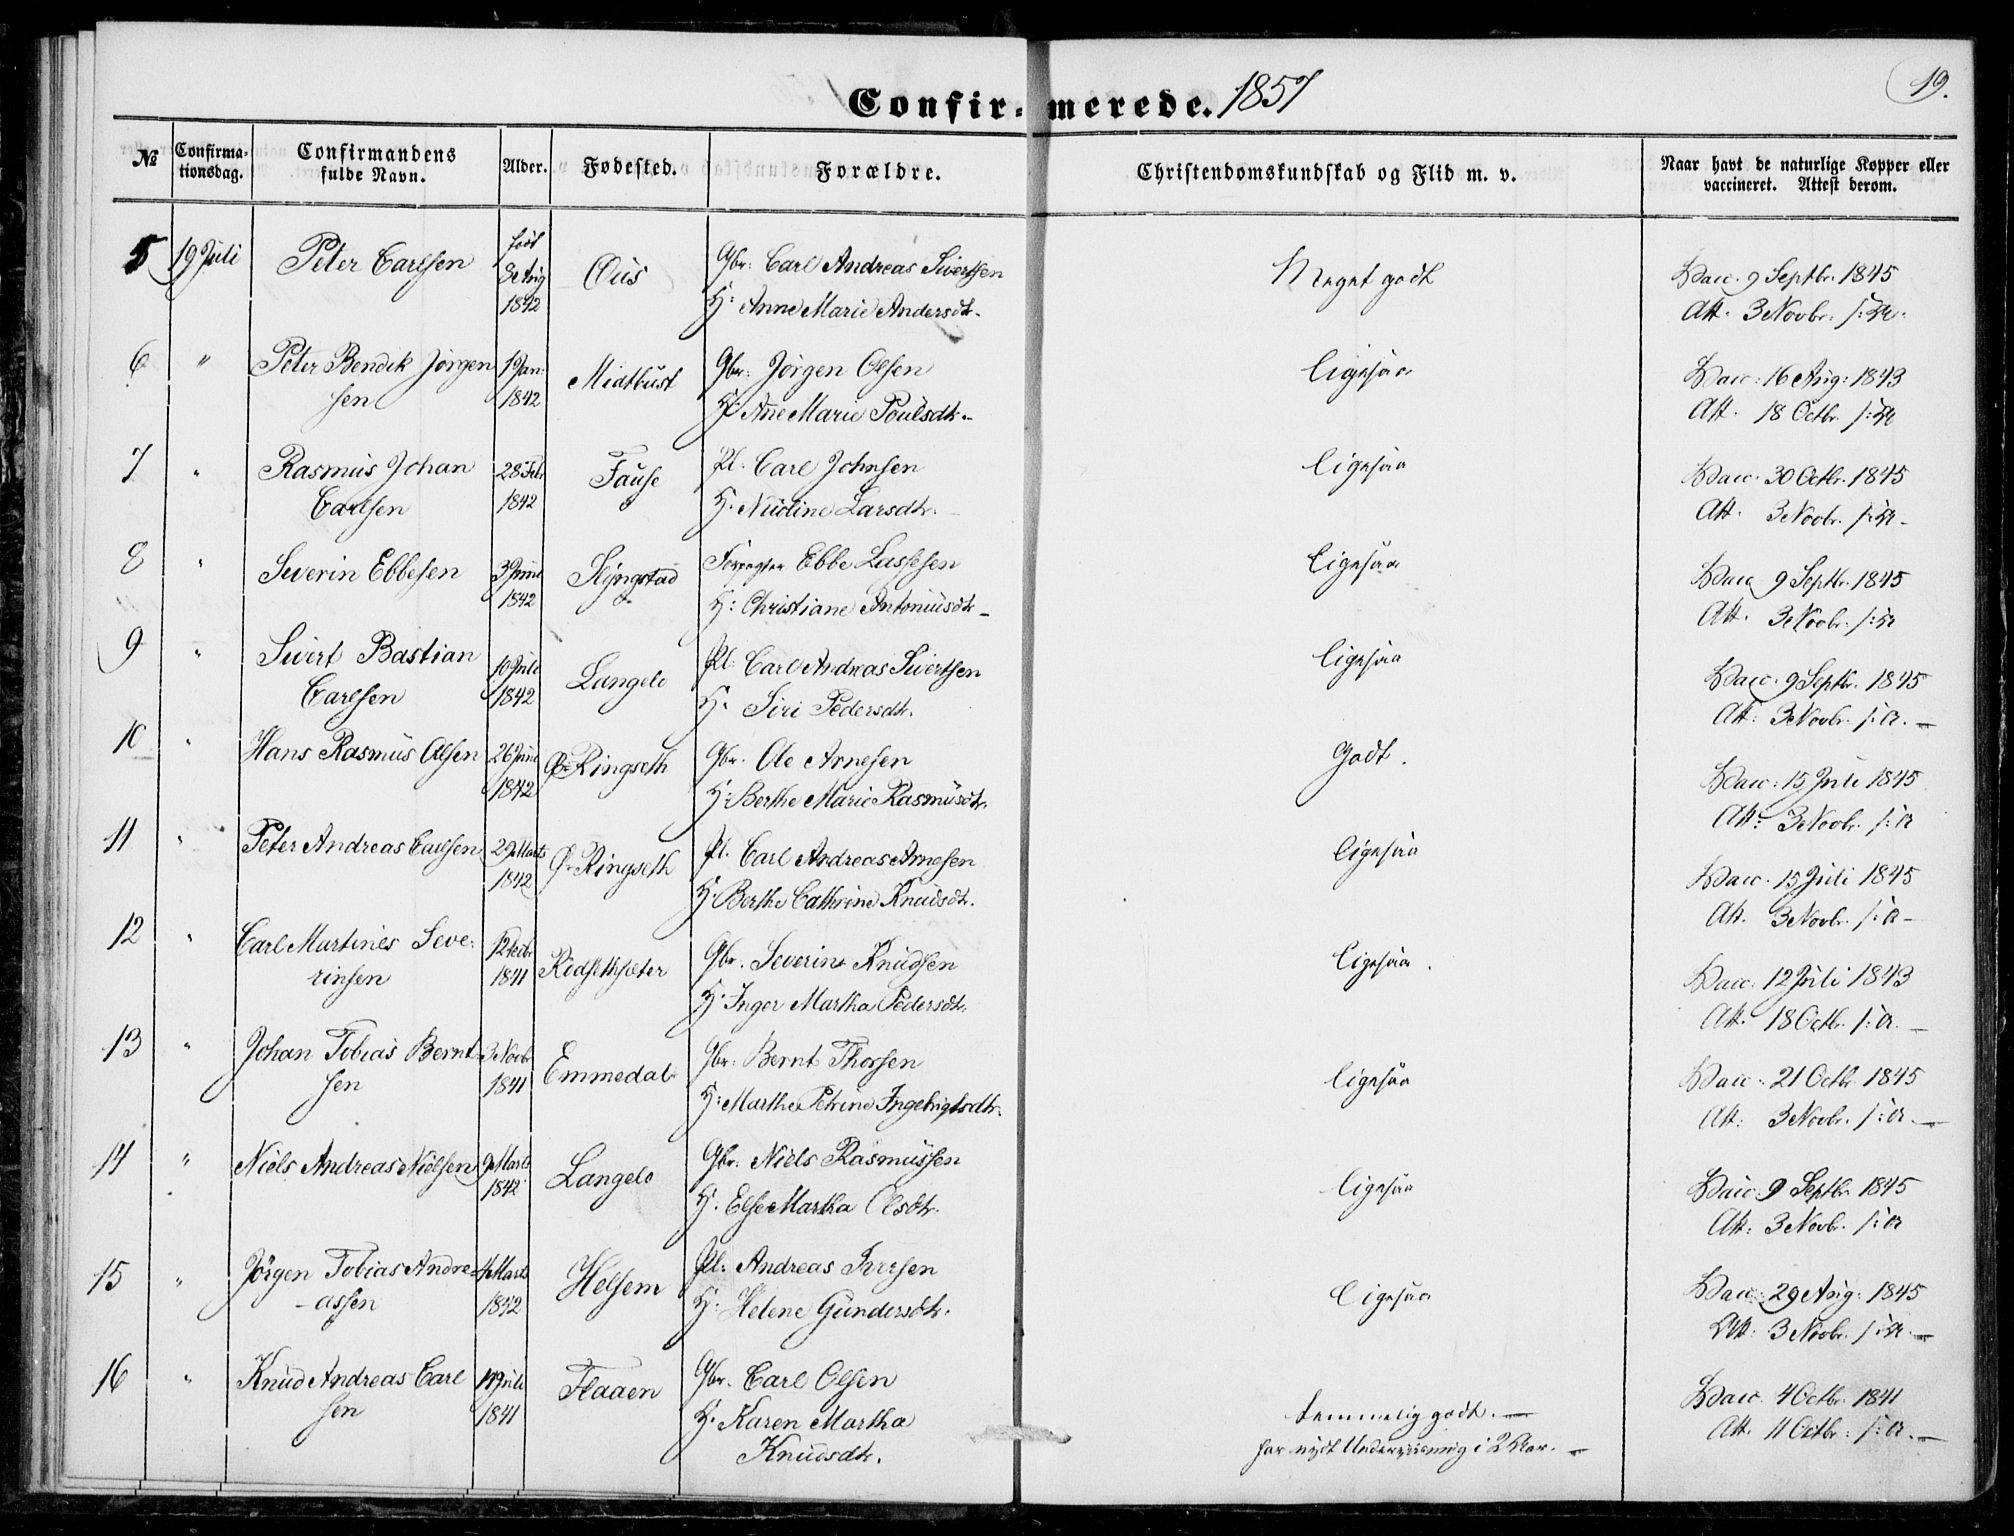 19.
Confirmerede. 1857
№
Confirmationsdag.
Confirmandens fulde Navn.
Alder.
Fødested.
Forældre.
Christendomskundskab og Flid m. v.
Naar havt de naturlige Kopper eller vaccineret. Attest derom.
5 19 Juli Peter Carlsen født 8 Aug 1842 Øus Gbr: Carl Andreas Sivertsen Meget godt Vacc. 9 Septbr. 1845
H: Anne Marie Andersdtr. Att. 3 Novbr. s: A.
6 " Peter Bendik Jørgen 1 Jan: 1842 Midtbust Gbr: Jørgen Olsen ligesaa Vacc: 16 Aug: 1843
sen H: Ane Marie Poulsdtr. Att. 18 Octbr. s: A
7 " Rasmus Johan 28 Febr 1842 Fause Pl. Carl Johnsen ligesaa Vacc. 30 Octbr. 1845
Carlsen H. Nicoline Larsdtr. Att. 3 Novbr. s: A
8 " Severin Ebbesen 3 Juni 1842 Slyngstad Forpagter Ebbe Lassesen ligesaa Vacc 9 Septbr. 1845
H: Christiane Antoniusdtr Att. 3 Novbr. s: A
9 " Sivert Bastian 10 Juli 1842 Langelo Pl. Carl Andreas Sivertsen ligesaa Vacc. 9 Septbr. 1845
Carlsen H. Siri Pedersdtr. Att: 3 Novbr. s: A.
10 " Hans Rasmus Olsen 26 Juni 1842 Ø. Ringseth Gbr. Ole Arnesen Godt. Vacc: 15 Juli 1845
H: Berthe Marie Rasmusdtr. Att: 3 Novbr. s: A
11 " Peter Andreas Carlsen 29 Marts 1842 Ø. Ringseth Pl. Carl Andreas Arnesen ligesaa Vacc. 15 Juli 1845
H. Berthe Cathrine Knudsdtr. Att. 3 Novbr. s: A
12 " Carl Martines Seve- 12 Decbr 1841 Rødsethsæter Gbr. Severin Knudsen ligesaa. Vacc: 12 Juli 1843
rinsen H. Inger Martha Pedersdtr. Att. 18 Octbr. s: A.
13 " Johan Tobias Bernt- 3 Novbr 1841 Emmedal Gbr: Bernt Thorsen ligesaa Vacc: 21 Octbr 1845
sen H: Marthe Petrine Ingebrigtsdtr. Att: 3 Novbr. s: A.
14 " Niels Andreas Nielsen 9 Marts 1842 Langelo Gbr: Niels Rasmussen ligesaa Vacc. 9 Septbr. 1845
H. Else Martha Olsdtr. Att: 3 Novbr. s: A
15 " Jørgen Tobias Andre- 4 Marts 1842 Helsem Pl: Andreas Iversen ligesaa Vacc: 29 Aug: 1845
assen H. Helene Gundersdtr. Att: 3 Novbr. s: A.
16 " Knud Andreas Carl 14 Juli 1841 Flaaen Gbr. Carl Olsen temmelig godt. Vacc. 4 Octbr. 1841
sen H. Karen Martha har nydt Underviisning i 2 Aar. Att. 11 Octbr: s: A.
Knudsdtr.